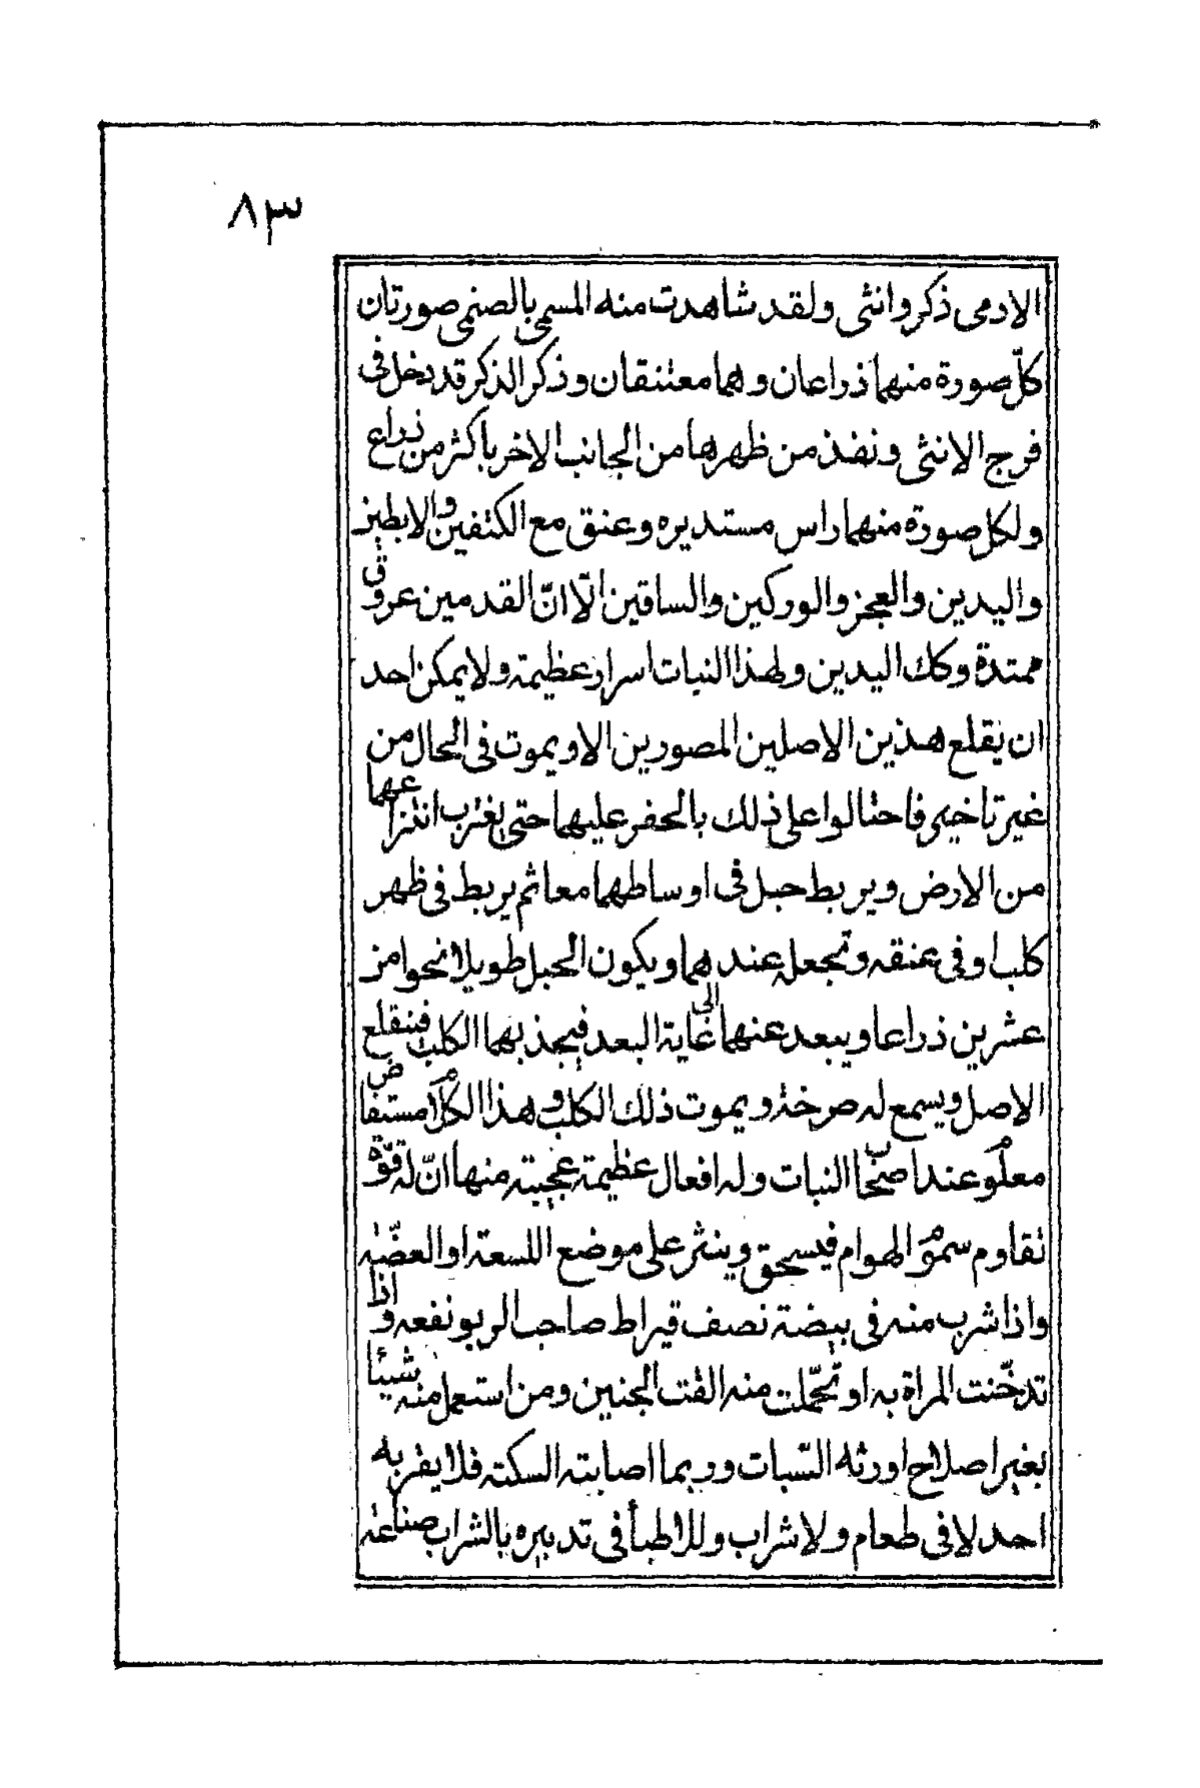 ٨٣
الادمى ذكر وانثى ولقد شاهدت منه المسمى بالصنمى صورتان
كلّ صورة منهما ذراعان وهما معتنقان وذكر الذكر قد دخل فى
فرج الانثى ونفذ من ظهرها من الجانب الاخر باكثر من ذراع
ولكل صورة منهما راس مستديره وعنق مع الكتفين والابطين
واليدين والعجز والوركين والساقين الّا انّ القدمين عروق
ممتدة وكك اليدين ولهذا النبات اسرار عظيمة ولا يمكن احد
ان يقلع هذين الاصلين المصورين الا ويموت فى الحال من
غير تاخير فاحتالوا على ذلك بالحفر عليهما حتى يقرب انتزاعهما
من الارض ويربط حبل فى اوساطهما معا ثم يربط فى ظهر
كلب او فى عنقه وتجعله عندهما ويكون الحبل طويلا نحوا من
عشرين ذراعا ويبعد عنهما الى غاية البعد فيجذبهما الكلب فينقلع
الاصل ويسمع له صرخة ويموت ذلك الكلب وهذا الكلام مستفاض
معلوم عند اصحاب النبات وله افعال عظيمة عجيبة منها انّ له قوّة
تقاوم سموم الهوام فيسحق وينثر على موضع اللسعة او العضّة
واذا شرب منه فى بيضة نصف قيراط صاحب الربو نفعه واذا
تدخّنت المراة به او تحمّلت منه القت الجنين ومن استعمل منه شيئا
بغير اصلاح اورثه السّبات وربما اصابته السكته فلا يقربه
احد لا فى طعام ولا شراب وللاطبأ فى تدبيره بالشراب صناعة